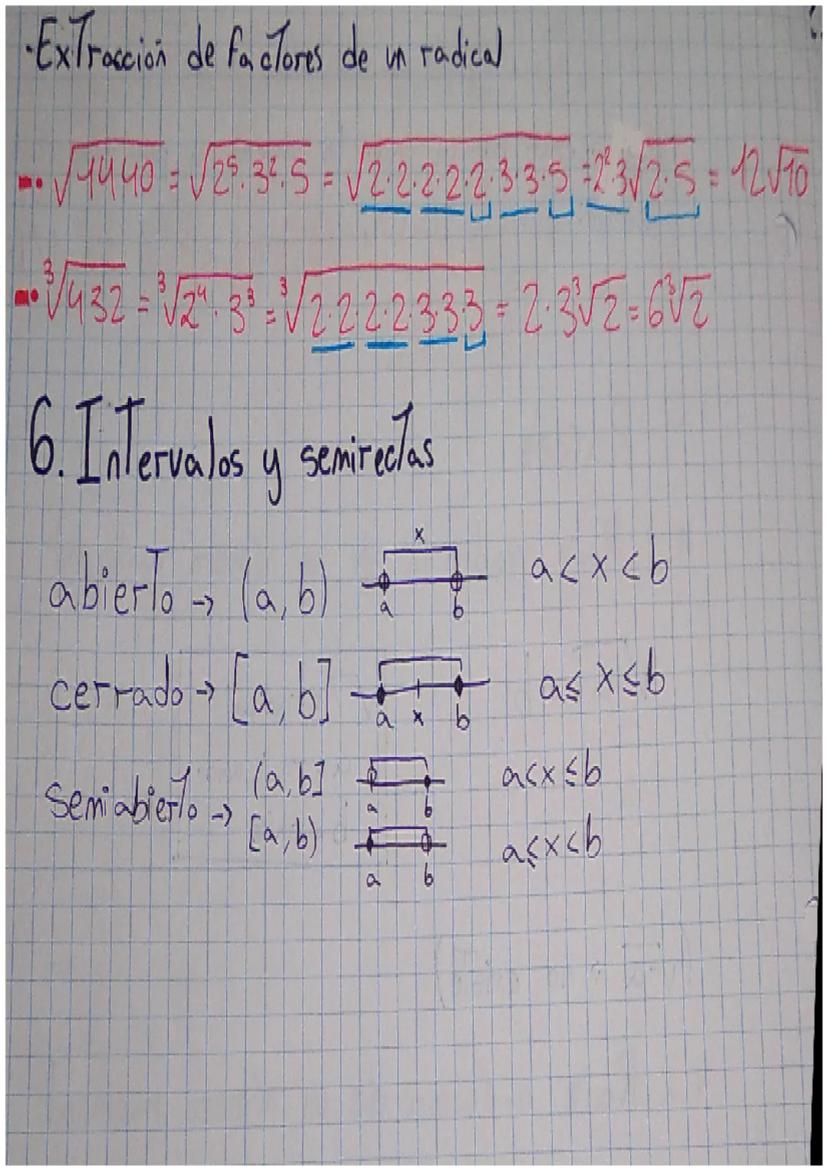 ·Extracción de factores de un radical
√1440 = √2⁵·3²·5 = √2·2·2·2·2·3·3·5 = 2²·3√2·5 = 12√10
³√432 = ³√2⁴·3³ = ³√2·2·2·2·3·3·3 = 2·3³√2 = 6³√2
6. Intervalos y semirectas
abierto → (a,b) x a b a<x<b
cerrado → [a,b] a x b a≤x≤b
semiabierto → (a,b] a b a<x≤b
[a,b) a b a≤x<b